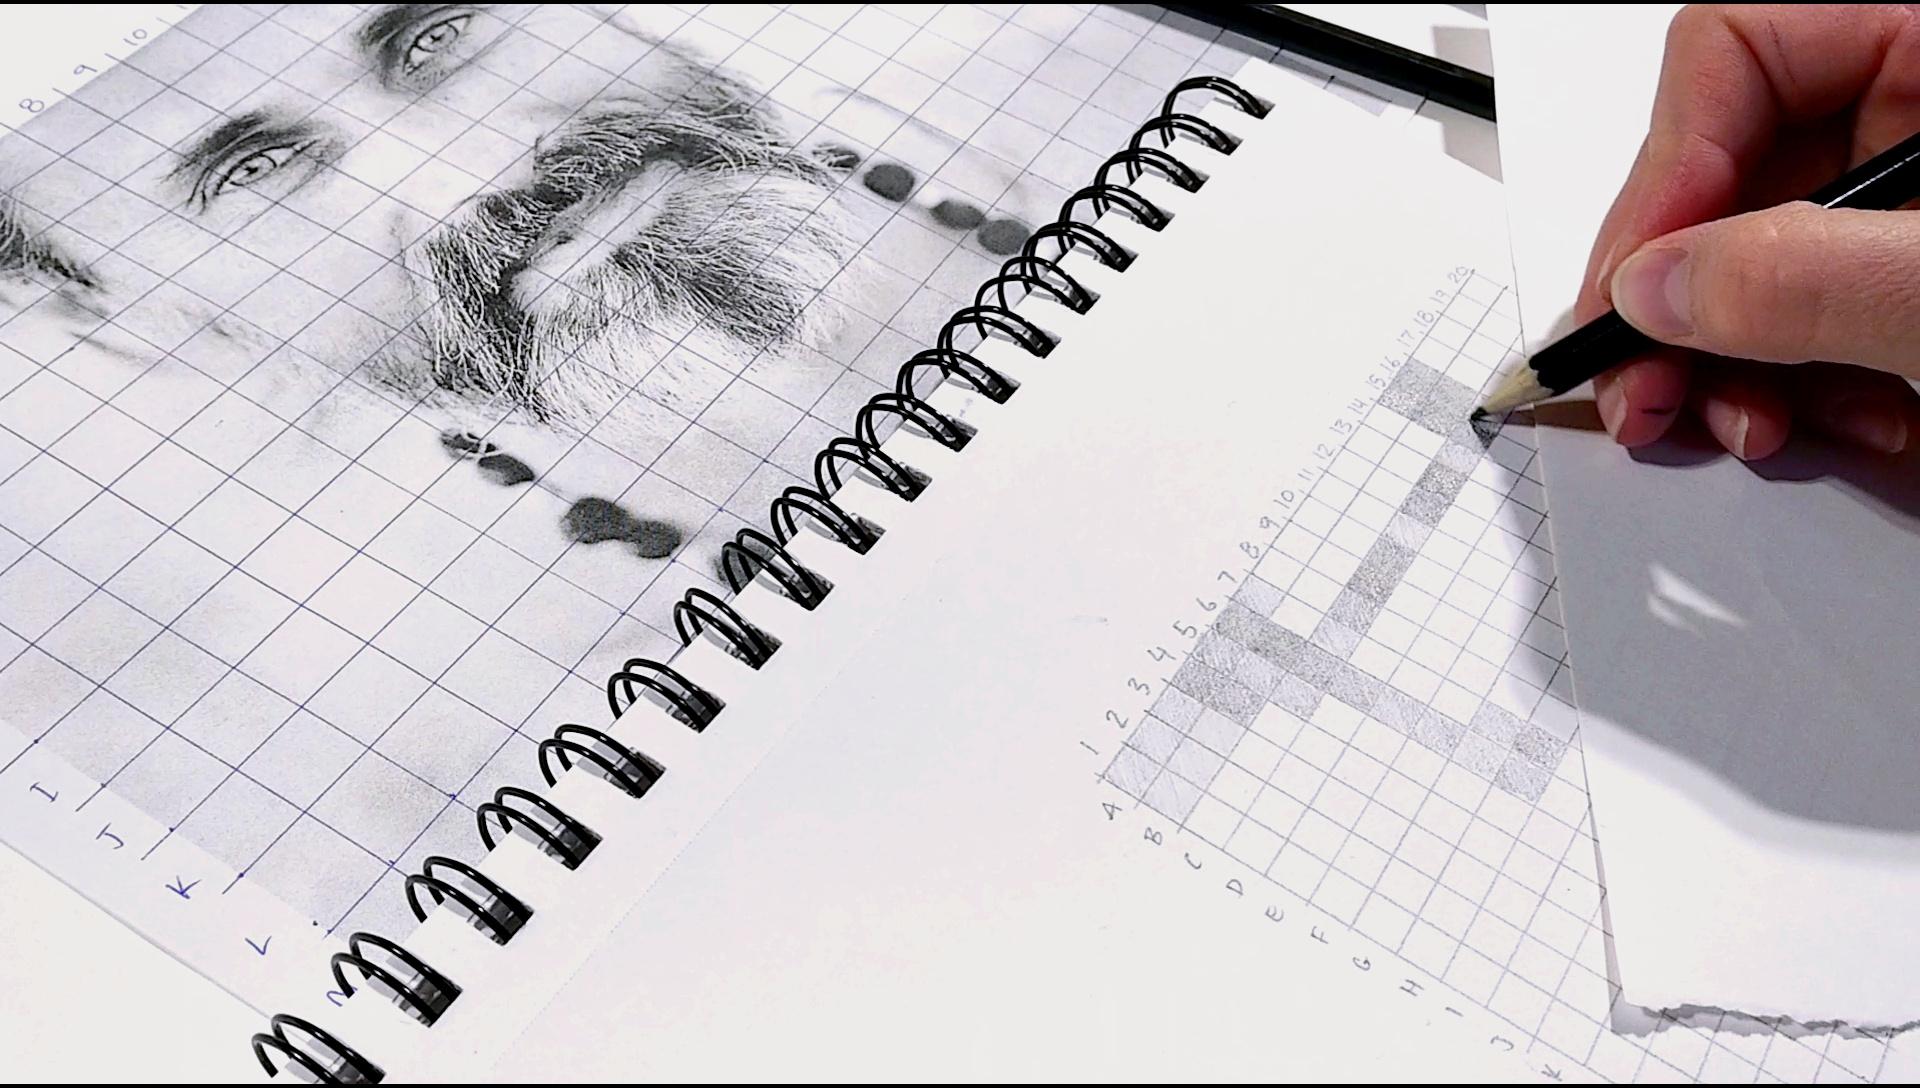 8 9 10
I
J
K
L
M
1 2 3 4 5 6 7 8 9 10 11 12 13 14 15 16 17 18 19 20
A
B
C
D
E
F
G
H
I
J
K